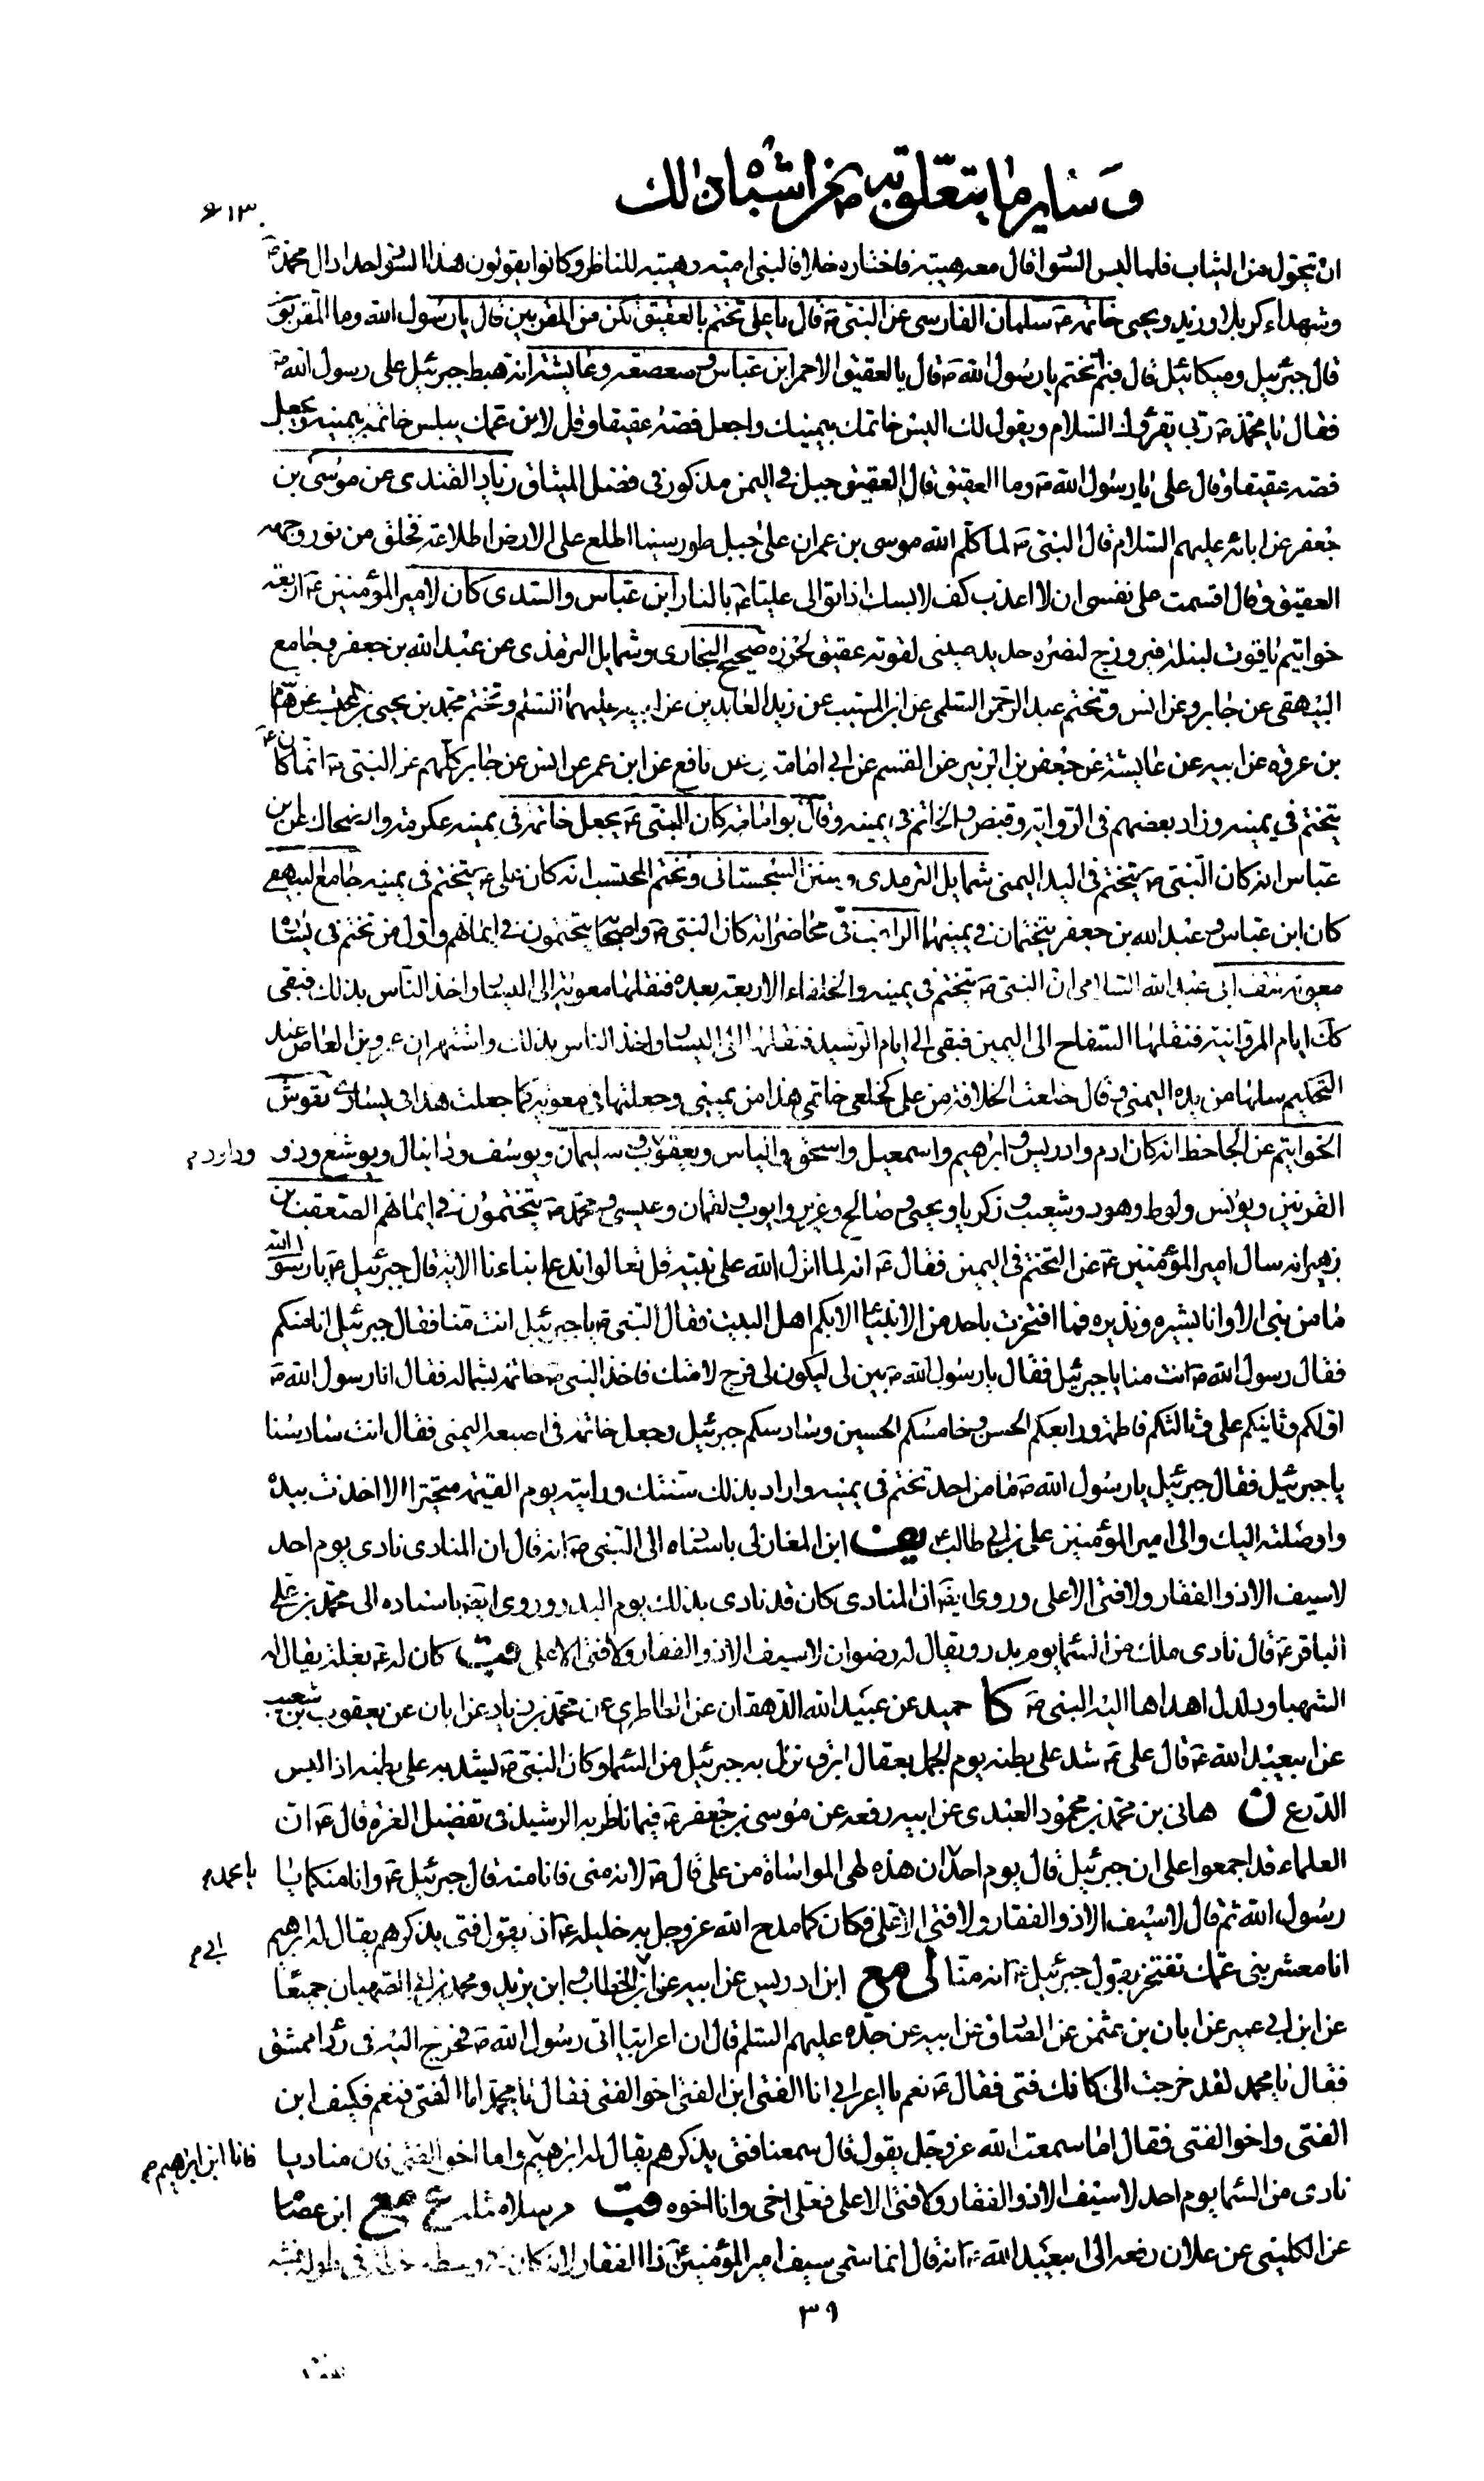 وساير ما يتعلق به ص من اشباه ذلك
٦١٣
ان تحول من الثياب فلما لبس السواد قال معه هيبة فاختاره خلافا لبنى امية وهيبة للناظر وكانوا يقولون هذا السواد حداد ال محمد ص
وشهداء كربلا وزيد ويحيى خاتمه ع سلمان الفارسى عن النبى ص قال يا على تختم بالعقيق تكن من المقربين قال يا رسول الله وما المقربون
قال جبرئيل وميكائيل قال فبم اتختم يا رسول الله ص قال بالعقيق الاحمر ابن عباس وصعصعة وعايشة انه هبط جبرئيل على رسول الله ص
فقال يا محمد ص ربى يقرؤك السلام ويقول لك البس خاتمك بيمينك واجعل فصه عقيقا وقل لابن عمك يلبس خاتمه بيمينه ويجعل
فصه عقيقا وقال على يا رسول الله ص وما العقيق قال العقيق جبل فى اليمن مذكور فى فضل الميثاق زياد القندى عن موسى بن
جعفر عن ابائه عليهم السلام قال النبى ص لما كلم الله موسى بن عمران على جبل طور سينا اطلع على الارض اطلاعة فخلق من نور وجهه
العقيق وقال اقسمت على نفسى ان لا اعذب كف لابسك اذا تولى عليا ع بالنار ابن عباس والسدى كان لامير المؤمنين ع اربعة
خواتيم ياقوت لنبله فيروزج لنصره حديد صينى لقوته عقيق لحرزه صحيح البخارى وشمايل الترمذى عن عبد الله بن جعفر وجامع
البيهقى عن جابر وعن انس وتختم عبد الرحمن السلمى عن ابن المسيب عن زين العابدين عن ابيه عليهما السلم وتختم محمد بن يحيى بن المحتسب عن هشام
بن عروة عن ابيه عن عايشة عن جعفر بن الزبير عن القسم عن ابى امامة وعن نافع عن ابن عمر عن انس عن جابر كلهم عن النبى ص انما كان ع
يتختم فى يمينه وزاد بعضهم فى الرواية وقبض والخاتم فى يمينه وقال ابو امامة كان النبى ص يجعل خاتمه فى يمينه عكرمة والضحاك عن ابن
عباس انه كان النبى ص يتختم فى اليد اليمنى شمايل الترمذى وسنن السجستانى وتختم المحتسب انه كان على ع يتختم فى يمينه جامع البيهقى
كان ابن عباس وعبد الله بن جعفر يتختمان فى يمينهما الراغب فى محاضراته كان النبى ص واصحابه يتختمون فى ايمانهم واول من تختم فى يساره
معوية نتف ابى عبد الله السلامى ان النبى ص يتختم فى يمينه والخلفاء الاربعة بعده فنقلها معوية الى اليسار واخذ الناس بذلك فبقى
كذلك ايام المروانية فنقلها السفاح الى اليمين فبقى الى ايام الرشيد فنقلها الى اليسار واخذ الناس بذلك واشتهر ان عمرو بن العاص عند
التحكيم سلها من يده اليمنى وقال خلعت الخلافة من على كخلعى خاتمى هذا من يمينى وجعلتها فى معوية كما جعلت هذا فى يسارى نقوش
الخواتيم عن الجاحظ انه كان ادم وادريس وابرهيم واسمعيل واسحق والياس ويعقوب وسليمان ويوسف ودانيال ويوشع وذو
وداود م
القرنين ويونس ولوط وهود وشعيب وزكريا ويحيى وصالح وعزير وايوب ولقمان وعيسى ومحمد ص يتختمون فى ايمانهم الصعقب بن
زهير انه سال امير المؤمنين ع عن التختم فى اليمين فقال ع انه لما انزل الله على نبيه قل تعالوا ندع ابناءنا الاية قال جبرئيل ع يا رسول الله
ما من نبى الا وانا بشيره ونذيره فما افتخرت باحد من الانبياء الا بكم اهل البيت فقال النبى ص يا جبرئيل انت منا فقال جبرئيل انا منكم
فقال رسول الله ص انت منا يا جبرئيل فقال يا رسول الله ص بين لى ليكون لى فرج لامتك فاخذ النبى ص خاتمه بشماله فقال انا رسول الله ص
اولكم وثانيكم على وثالثكم فاطمة ورابعكم الحسن وخامسكم الحسين وسادسكم جبرئيل وجعل خاتمه فى اصبعه اليمنى فقال انت سادسنا
يا جبرئيل فقال جبرئيل يا رسول الله ص ما من احد تختم فى يمينه واراد بذلك سنتك ورايته يوم القيمة متحيرا الا اخذت بيده
واوصلته اليك والى امير المؤمنين على بن ابى طالب ع ابن المغازلى باسناده الى النبى ص انه قال ان المنادى نادى يوم احد
لا سيف الا ذو الفقار ولا فتى الا على وروى ايضا ان المنادى كان قد نادى بذلك يوم البدر وروى ايضا باسناده الى محمد بن على
الباقر ع قال نادى ملك من السما يوم بدر ويقال له رضوان لا سيف الا ذو الفقار ولا فتى الا على قب كان له ع بغلة يقال له
الشهبا ودلدل اهداها اليه النبى ص كا حميد عن عبيد الله الدهقان عن الطاطرى عن محمد بن زياد عن ابان عن يعقوب بن شعيب
عن ابيعبد الله ع قال على ع شد على بطنه يوم الجمل بعقال ابرق نزل به جبرئيل من السما وكان النبى ص يشد به على بطنه اذا لبس
الدرع ن هانى بن محمد بن محمود العبدى عن ابيه رفعه عن موسى بن جعفر ع فيما ناظر به الرشيد فى تفضيل العترة قال ع ان
العلماء قد اجمعوا على ان جبرئيل قال يوم احد ان هذه لهى المواساة من على قال ص لانه منى وانا منه قال جبرئيل ع وانا منكما يا
يا محمد م
رسول الله ثم قال لا سيف الا ذو الفقار ولا فتى الا على فكان كما مدح الله عز وجل به خليله ع اذ يقول فتى يذكرهم يقال له ابرهيم
انا معشر بنى عمك نفتخر بقول جبرئيل ع انه منا لى مع ابن ادريس عن ابيه عن ابن الخطاب وابن يزيد ومحمد بن ابى الصهبان جميعا
ابى م
عن ابن ابى عمير عن ابان بن عثمن عن الصادق عن ابيه عن جده عليهم السلم قال ان اعرابيا اتى رسول الله ص فخرج اليه فى رداء ممشق
فقال يا محمد لقد خرجت الى كانك فتى فقال ع نعم يا اعرابى انا الفتى ابن الفتى اخو الفتى فقال يا محمد اما الفتى فنعم فكيف ابن
الفتى واخو الفتى فقال اما سمعت الله عز وجل يقول قال سمعنا فتى يذكرهم يقال له ابرهيم واما اخو الفتى فان مناديا
فانا ابن ابرهيم م
نادى من السما يوم احد لا سيف الا ذو الفقار ولا فتى الا على فعلى اخى وانا اخوه قب مرسلا مثله ع مع ابن عصام
عن الكلينى عن علان رفعه الى ابيعبد الله ع انه قال انما سمى سيف امير المؤمنين ع ذا الفقار لانه كان فى وسطه خط فى طوله
٣٩